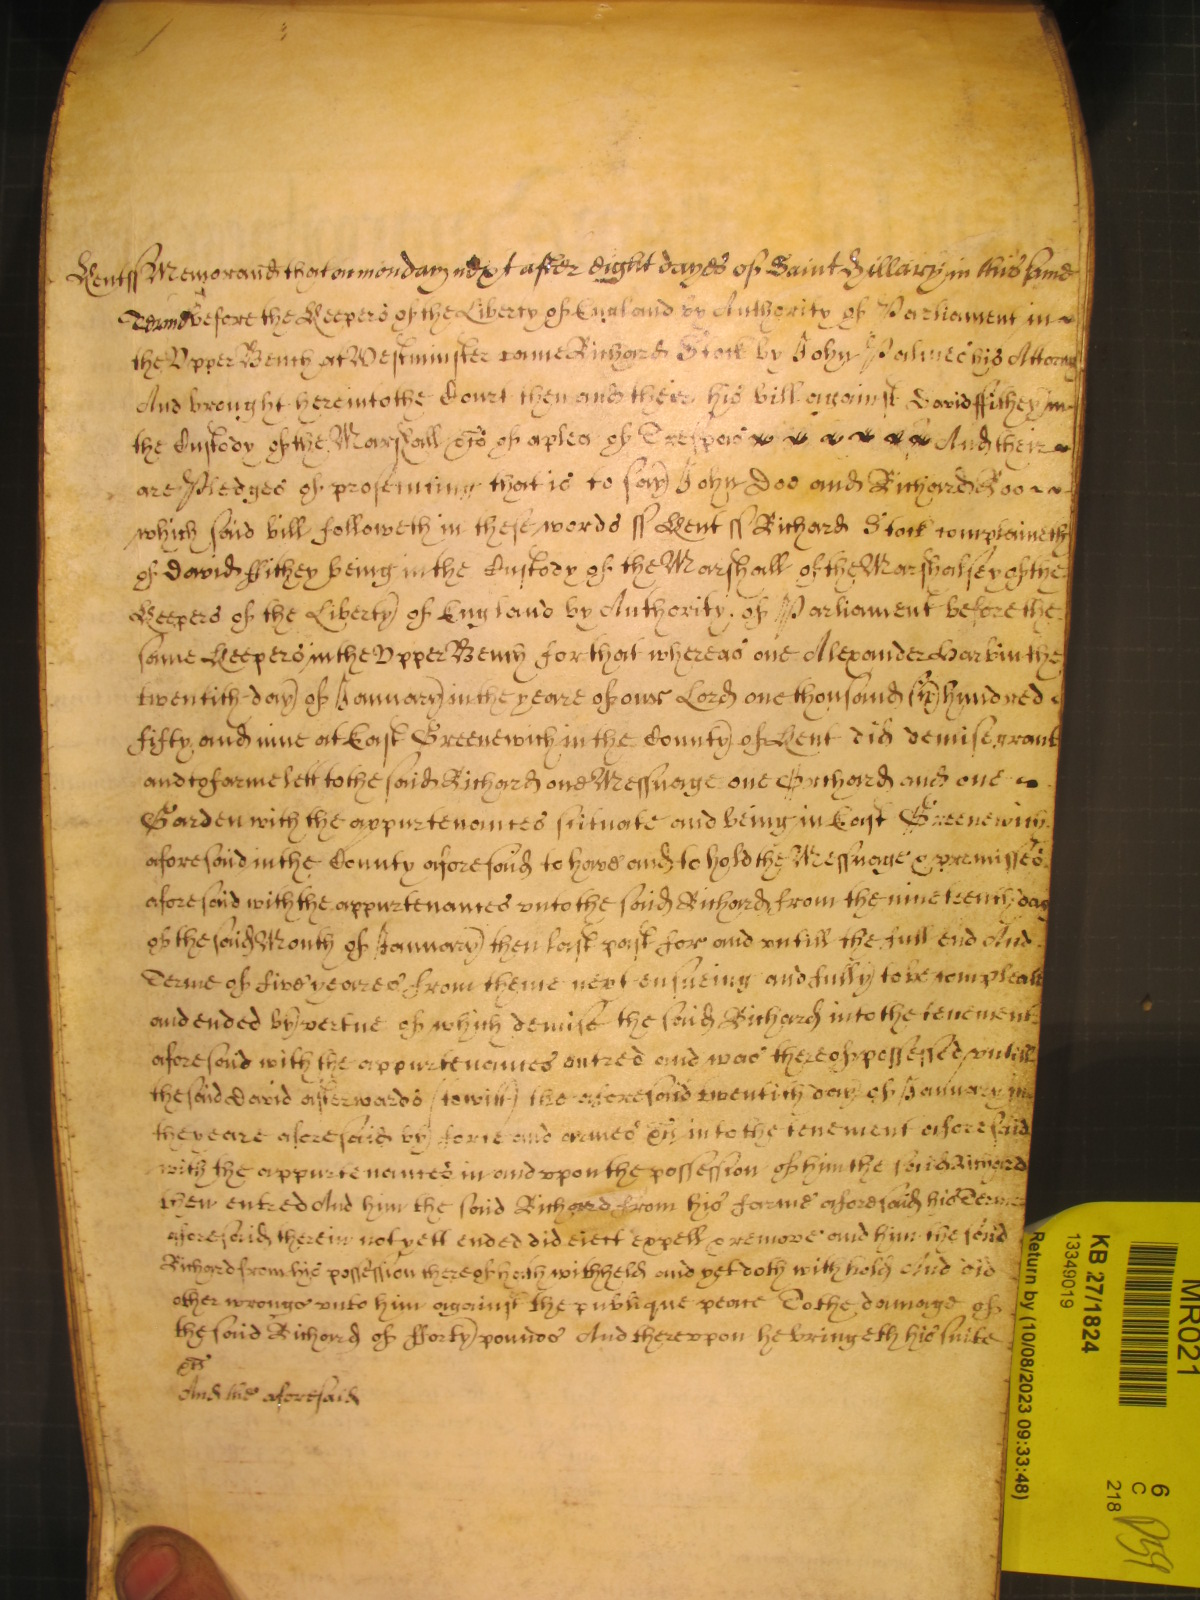 Kent ss Memorand that on monday next after eight dayes of Saint Hillary in this same
Terme before the Keepers of the Liberty of England by Authority of Parliament in
the Vpper Bench at Westminster came Richard Stock by John Palmer his Attorny
And brought here into the Court then and their his bill against David ffithey in
the Custody of the Marshall &c of a plea of Trespas And their
are Pledges of prosecuting that is to say John Doo and Richard Roo
which said bill followeth in these words ss Kent ss Richard Stock complaineth
of David ffithey being in the Custody of the Marshall of the Marshalsey of the
Keepers of the Liberty of England by Authority of Parliament before the
same Keepers in the Vpper Bench for that whereas one Alexander the
twentith day of January in the yeare of our Lord one thousand six hundred
fifty and nine at East Greenewich in the County of Kent did demise grant
and to farme lett to the said Richard one Messuage one Orchard and one
Garden with the appurtenances scituate and being in East Greenewich
aforesaid in the County aforesaid to have and to hold the Messuage & premisses
aforesaid with the appurtenances vnto the said Richard from the nineteenth day
of the said Month of January then last past for and vntill the full end And
Terme of five yeares from thence next ensueing and fully to be compleat
and ended by vertue of which demise the said Richard into the tenement
aforesaid with the appurtenances entred and was thereof possessed vntill
the said David afterwards (to witt) the aforesaid twentith day of January in
the yeare aforesaid by force and armes &c into the tenement aforesaid
with the appurtenances in and vpon the possession of him the said Richard
then entred And him the said Richard from his farme aforesaid his Terme
aforesaid therein not yett ended did eiect expell & remove and him the said
Richard from his possession thereof hath withheld and yet doth withhold And did
other wrongs vnto him against the publique peace To the damage of
the said Richard of fforty pounds And therevpon he bringeth his suite
&c
And the aforesaid
MR021
KB 27/1824
13349019
Return by (10/08/2023 09:33:48)
6
C
218